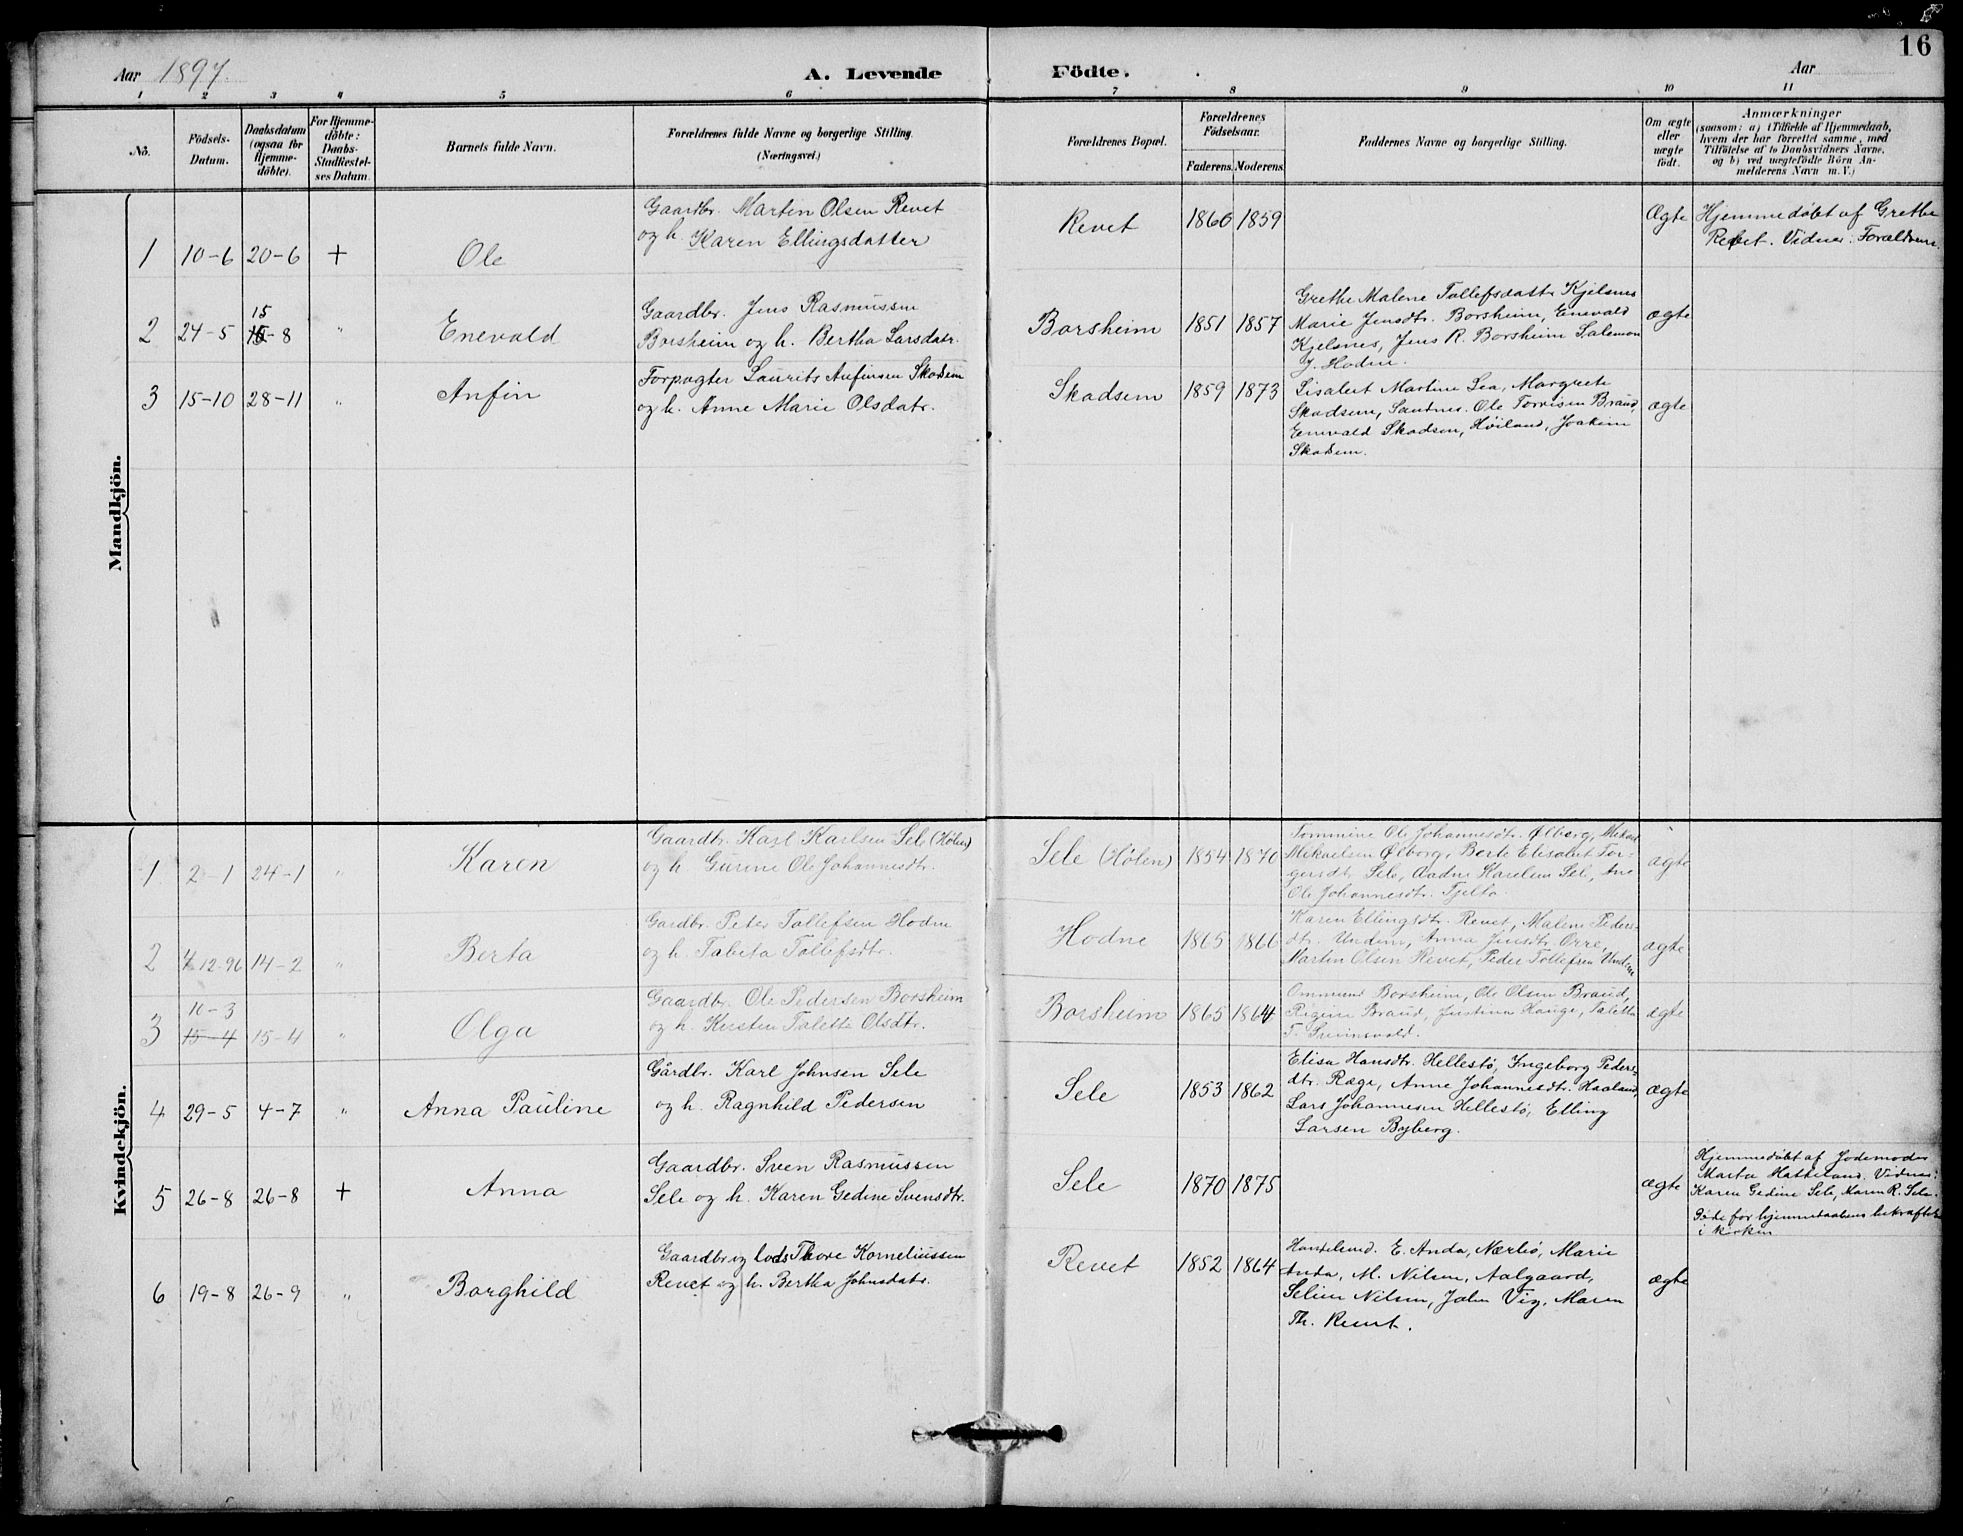 16
Aar 1897.
A. Levende Födte.
Aar
1 2 3 4 5 6 7 8 9 10 11
No.
Födsels-
Datum.
Daabsdatum
(ogsaa for
Hjemme-
döbte).
For Hjemme-
döbte:
Daabs-
Stadfæstel-
ses Datum.
Barnets fulde Navn.
Forældrenes fulde Navne og borgerlige Stilling.
(Næringsvei.)
Forældrenes Bopæl.
Forældrenes
Födselsaar.
Faderens. Moderens.
Faddernes Navne og borgerlige Stilling.
Om ægte
eller
uægte
födt.
Anmærkninger
(saasom: a) i Tilfælde af Hjemmedaab,
hvem der har forrettet samme, med
Tilföielse af to Daabsvidners Navne,
og b) ved uægtefödte Börn An-
melderens Navn m. V.)
Mandkjön.
1 10-6 20-6 + Ole
Gaardbr. Martin Olsen Revet
og h. Karen Ellingsdatter
Revet 1860 1859
Ægte
Hjemmedöbt af Grethe
Revet. Vidner: Forældrene.
2 24-5 15-8 " Enevald
15
Gaardbr. Jens Rasmussen
Borsheim og h. Bertha Larsdatr.
Borsheim 1851 1857
Grethe Malene Tollefsdattr Kjelsnes
Marie Jensdtr. Borsheim, Enevald
Kjelsnes, Jens R. Borsheim Salemon
J. Hodne.
ægte
3 15-10 28-11 " Anfin
Forpagter Laurits Anfinsen Skadsem
og h. Anne Marie Olsdatr.
Skadsem 1859 1873
Lisabet Martine Lea, Margrete
Skadsem, Sandnes. Ole Torrisen Braud,
Enevald Skadsem, Höiland, Joakim
Skadsem.
ægte
Kvindekjön.
1 2-1 24-1 " Karen
Gaardbr. Karl Karlsen Sele (Hölen)
og h. Gurine Ole Johannesdtr.
Sele (Hölen) 1854 1870
Tommine Ole Johannesdtr. Ølberg, Mikael
Mikaelsen Ølborg, Berte Elisabet Tor-
gersdtr Sele, Aadne Karelius Sele, Ane
Ole Johannesdtr. Tjelta.
ægte
2 12-96 14-2 " Berta
Gardbr. Peter Tollefsen Hodne
og h. Tabeta Tollefsdtr.
Hodne 1865 1866
Karen Ellingsdtr. Revet, Malene Peders-
dtr. Undem, Anna Jensdtr. Orre,
Martin Olsen Revet, Peder Tollefsen Undem
ægte
10-3
3 15-4 15-4 " Olga
Gaardbr. Ole Pedersen Borsheim
og h. Kirsten Taletta Olsdtr.
Borsheim 1865 1864
Ommund Borsheim, Ole Olsen Braud,
Regine Braud, Justina Hauge, Taletta
T.
ægte
4 29-5 4-7 " Anna Pauline
Gårdbr. Karl Johnsen Sele
og h. Ragnhild Pedersen
Sele 1853 1862
Elisa Hansdtr. Hellestø, Ingeborg Peders-
dtr. Ræge, Anne Johannesdtr. Haaland,
Lars Johannesen Hellestø, Elling
Larsen Byberg.
ægte
5 26-8 26-8 + Anna
Gaardbr. Sven Rasmussen
Sele og h. Karen Gedine Svensdtr.
Sele 1870 1875
ægte
Hjemmedöbt af Jodemoder
Marta Hatteland. Vidner:
Karen Gedine Sele, Maren R. Sele.
Döde før hjemmedaabens bekræftelse
i kirken
6 19-8 26-9 " Borghild
Gaardbr og lods Thore Korneliussen
Revet og h. Bertha Johnsdatr.
Revet 1852 1864
Handelsmd. E. Anda, Nærbø, Marie
Anda, M. Nilsen, Aalgaard,
Seline Nilsen, John Vig, Maren
Th. Revet.
ægte